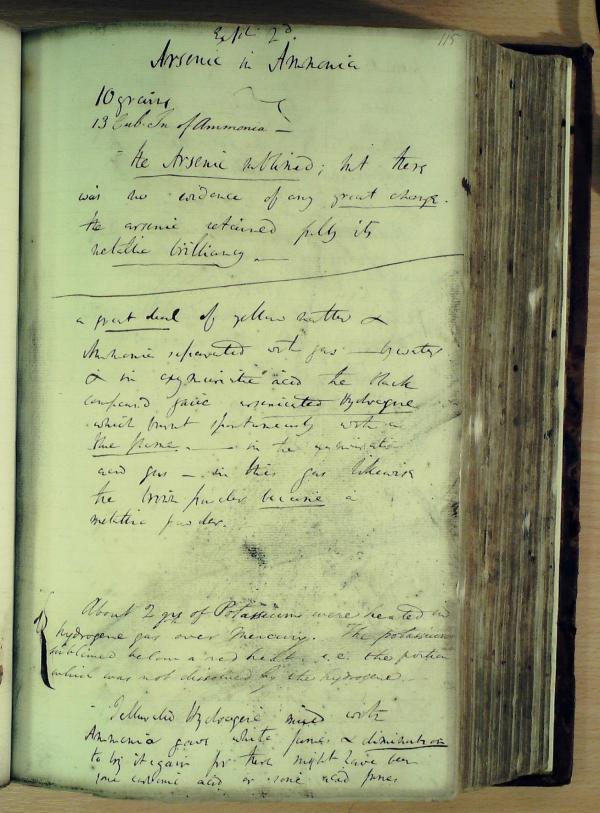 115
Expt. 2d.
Arsenic in Ammonia
10 grains
13 Cub. In of Ammonia —
The Arsenic sublimed; but there
was no evidence of any great change.
the arsenic retained fully its
metallic brilliancy —
a great deal of yellow matter &
Ammonia separated with gas — by water
& in oxymuriatic acid the black
compound gave arseniated Hydrogene
which burnt spontaneously with a
blue flame. — in the
acid gas — in this gas likewise
the brown powder became a
metallic powder.
About 2 grs of Potassium were heated in
hydrogene gas over Mercury. The potassium
sublimed below a red heat i.e. the portion
which was not dissolved by the hydrogene.
Telluretted Hydrogene mixed with
Ammonia gave white fumes & diminution
to try it again for there might have been
some carbonic acid or acid fumes